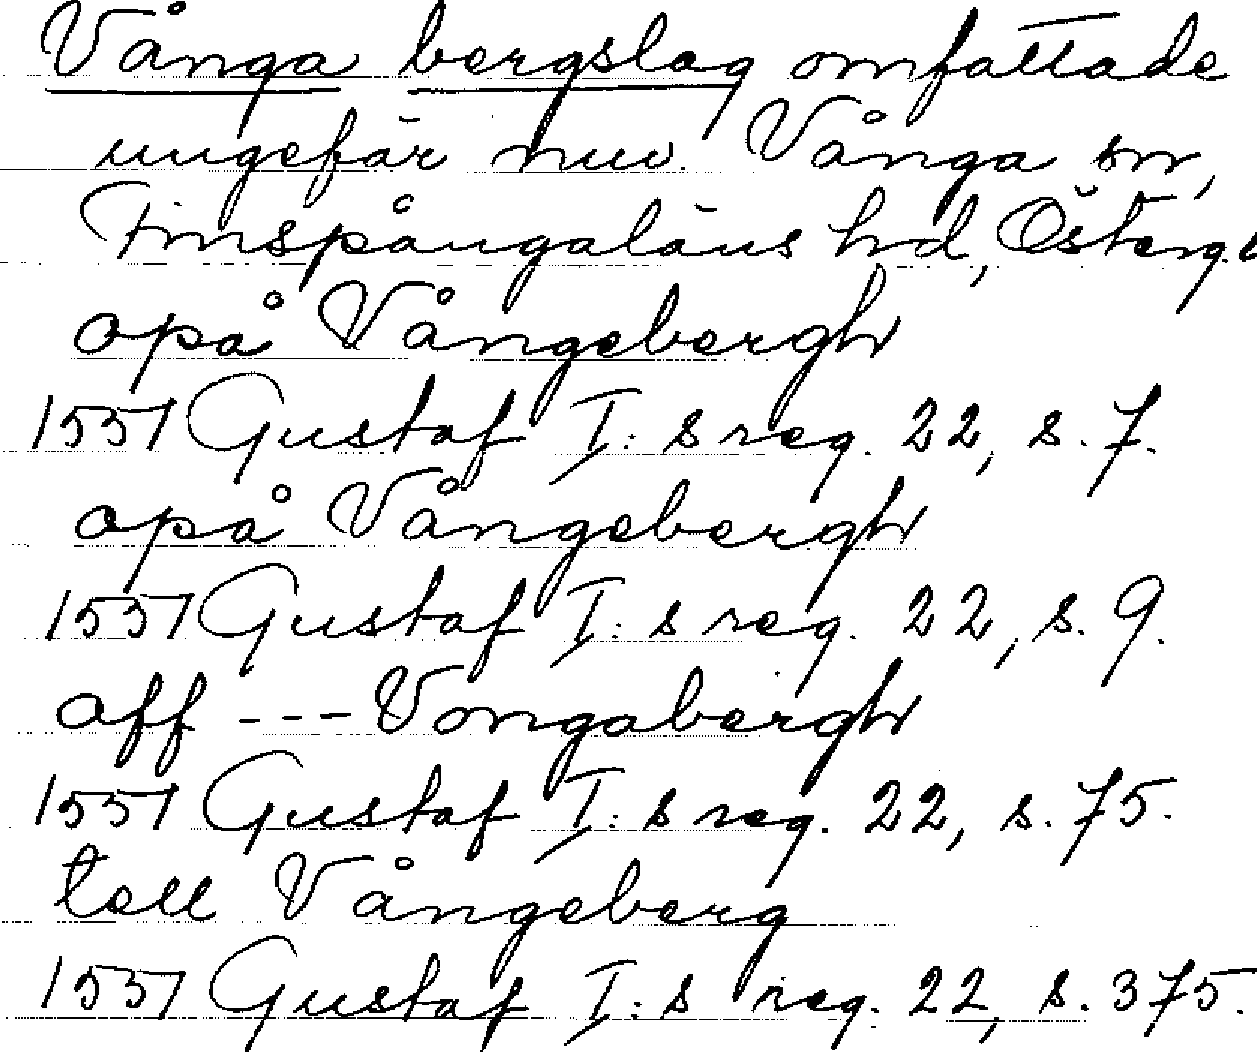 Vånga bergslag omfattade
ungefär nuv. Vånga sn,
Finspångaläns hd, Österg.
opå Vångebergh
1551 Gustaf I:s reg. 22, s. 7.
opå Vångebergh
1551 Gustaf I:s reg. 22, s. 9.
aff --- Vongabergh
1551 Gustaf I:s reg. 22, s. 75.
tell Vångeberg
1551 Gustaf I:s reg. 22, s. 375.